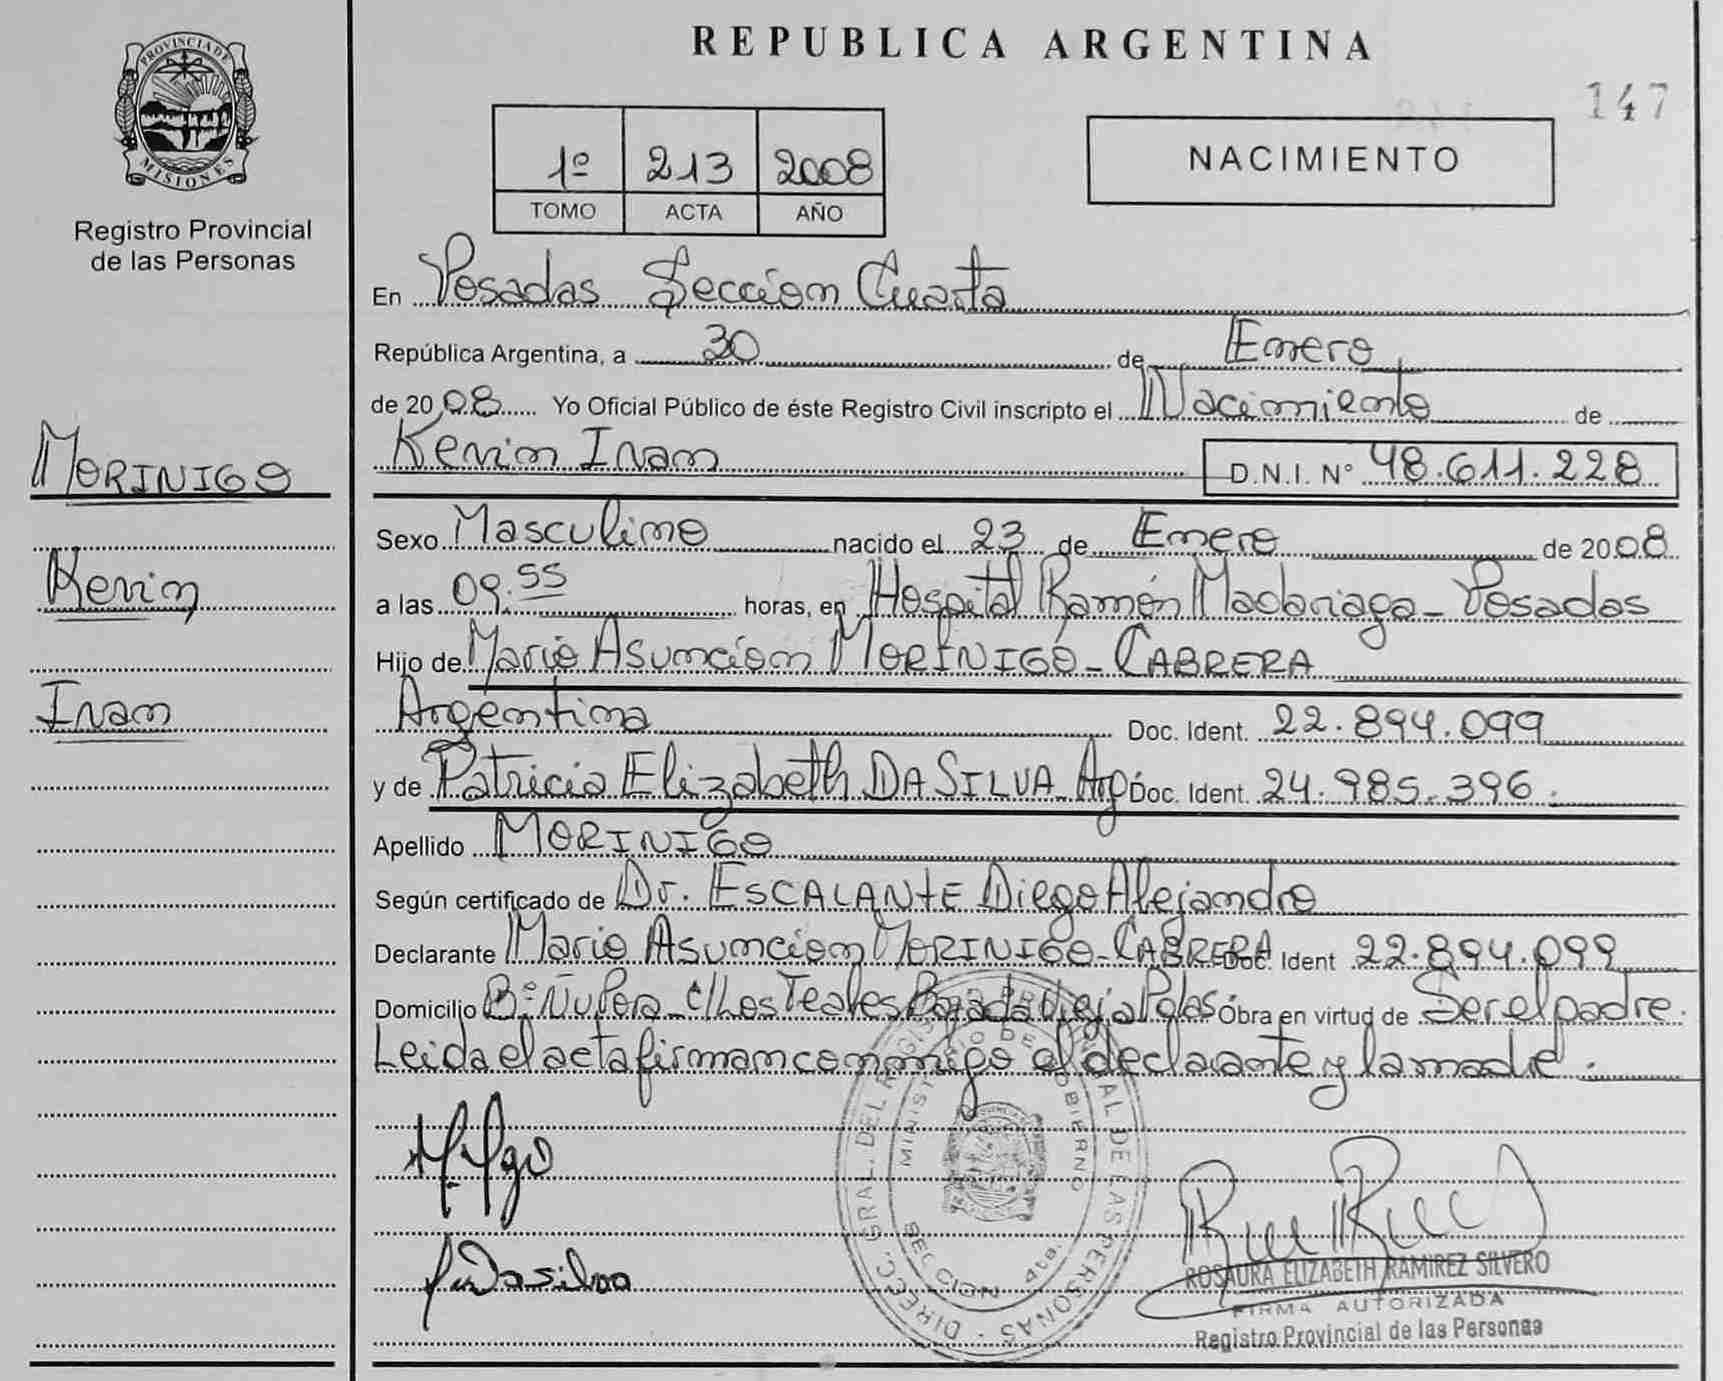 PROVINCIA DE
MISIONES
Registro Provincial
de las Personas
MORINIGO
Kevin
Ivan
REPUBLICA ARGENTINA
147
1º 213 2008
TOMO ACTA AÑO
NACIMIENTO
En Posadas Sección Cuarta
República Argentina, a 30 de Enero
de 2008 Yo Oficial Público de éste Registro Civil inscripto el Nacimiento de
Kevin Ivan D.N.I. N° 48.611.228
Sexo Masculino nacido el 23 de Enero de 2008
a las 09.55 horas, en Hospital Ramón Madariaga - Posadas
Hijo de Mario Asunción MORINIGO - CABRERA
Argentina Doc. Ident. 22.894.099
y de Patricia Elizabeth DA SILVA - Arg Doc. Ident. 24.985.396.
Apellido MORINIGO
Según certificado de Dr. ESCALANTE Diego Alejandro
Declarante Mario Asunción MORINIGO - CABRERA Doc. Ident 22.894.099
Domicilio B° Ñu Pora - C/ Los Teales Bajada Vieja Pdas Obra en virtud de Ser el padre.
Leida el acta firman conmigo el declarante y la madre.
DIREC. GRAL. DEL REGISTRO PROVINCIAL DE LAS PERSONAS
MINISTERIO DE GOBIERNO
SECCION 4ta.
P Dasilva
ROSAURA ELIZABETH RAMIREZ SILVERO
FIRMA AUTORIZADA
Registro Provincial de las Personas